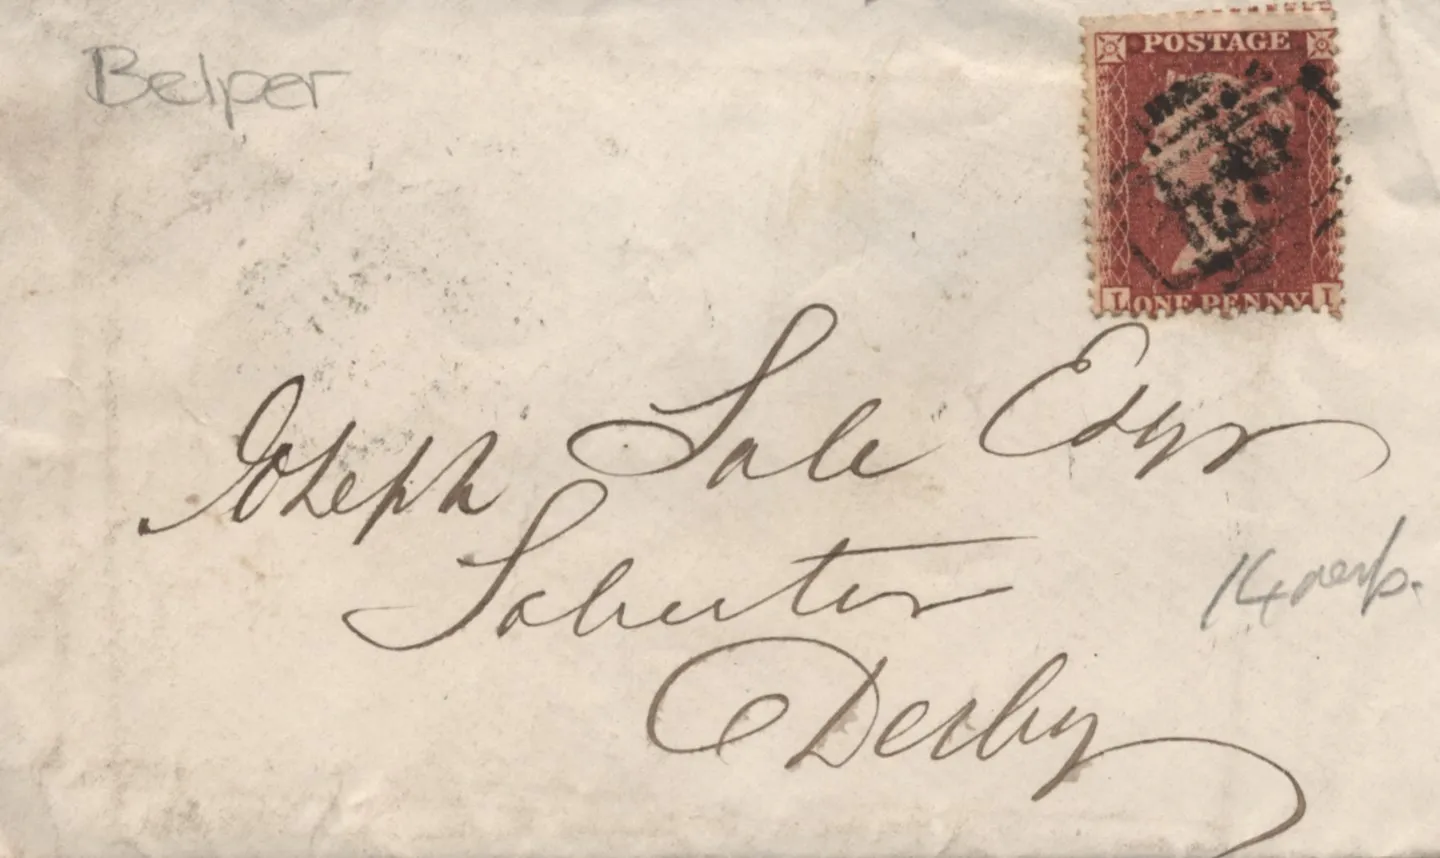 Belper
POSTAGE
I ONE PENNY I
Joseph Sale Esqr
Solicitor
Derby
14 perfs.